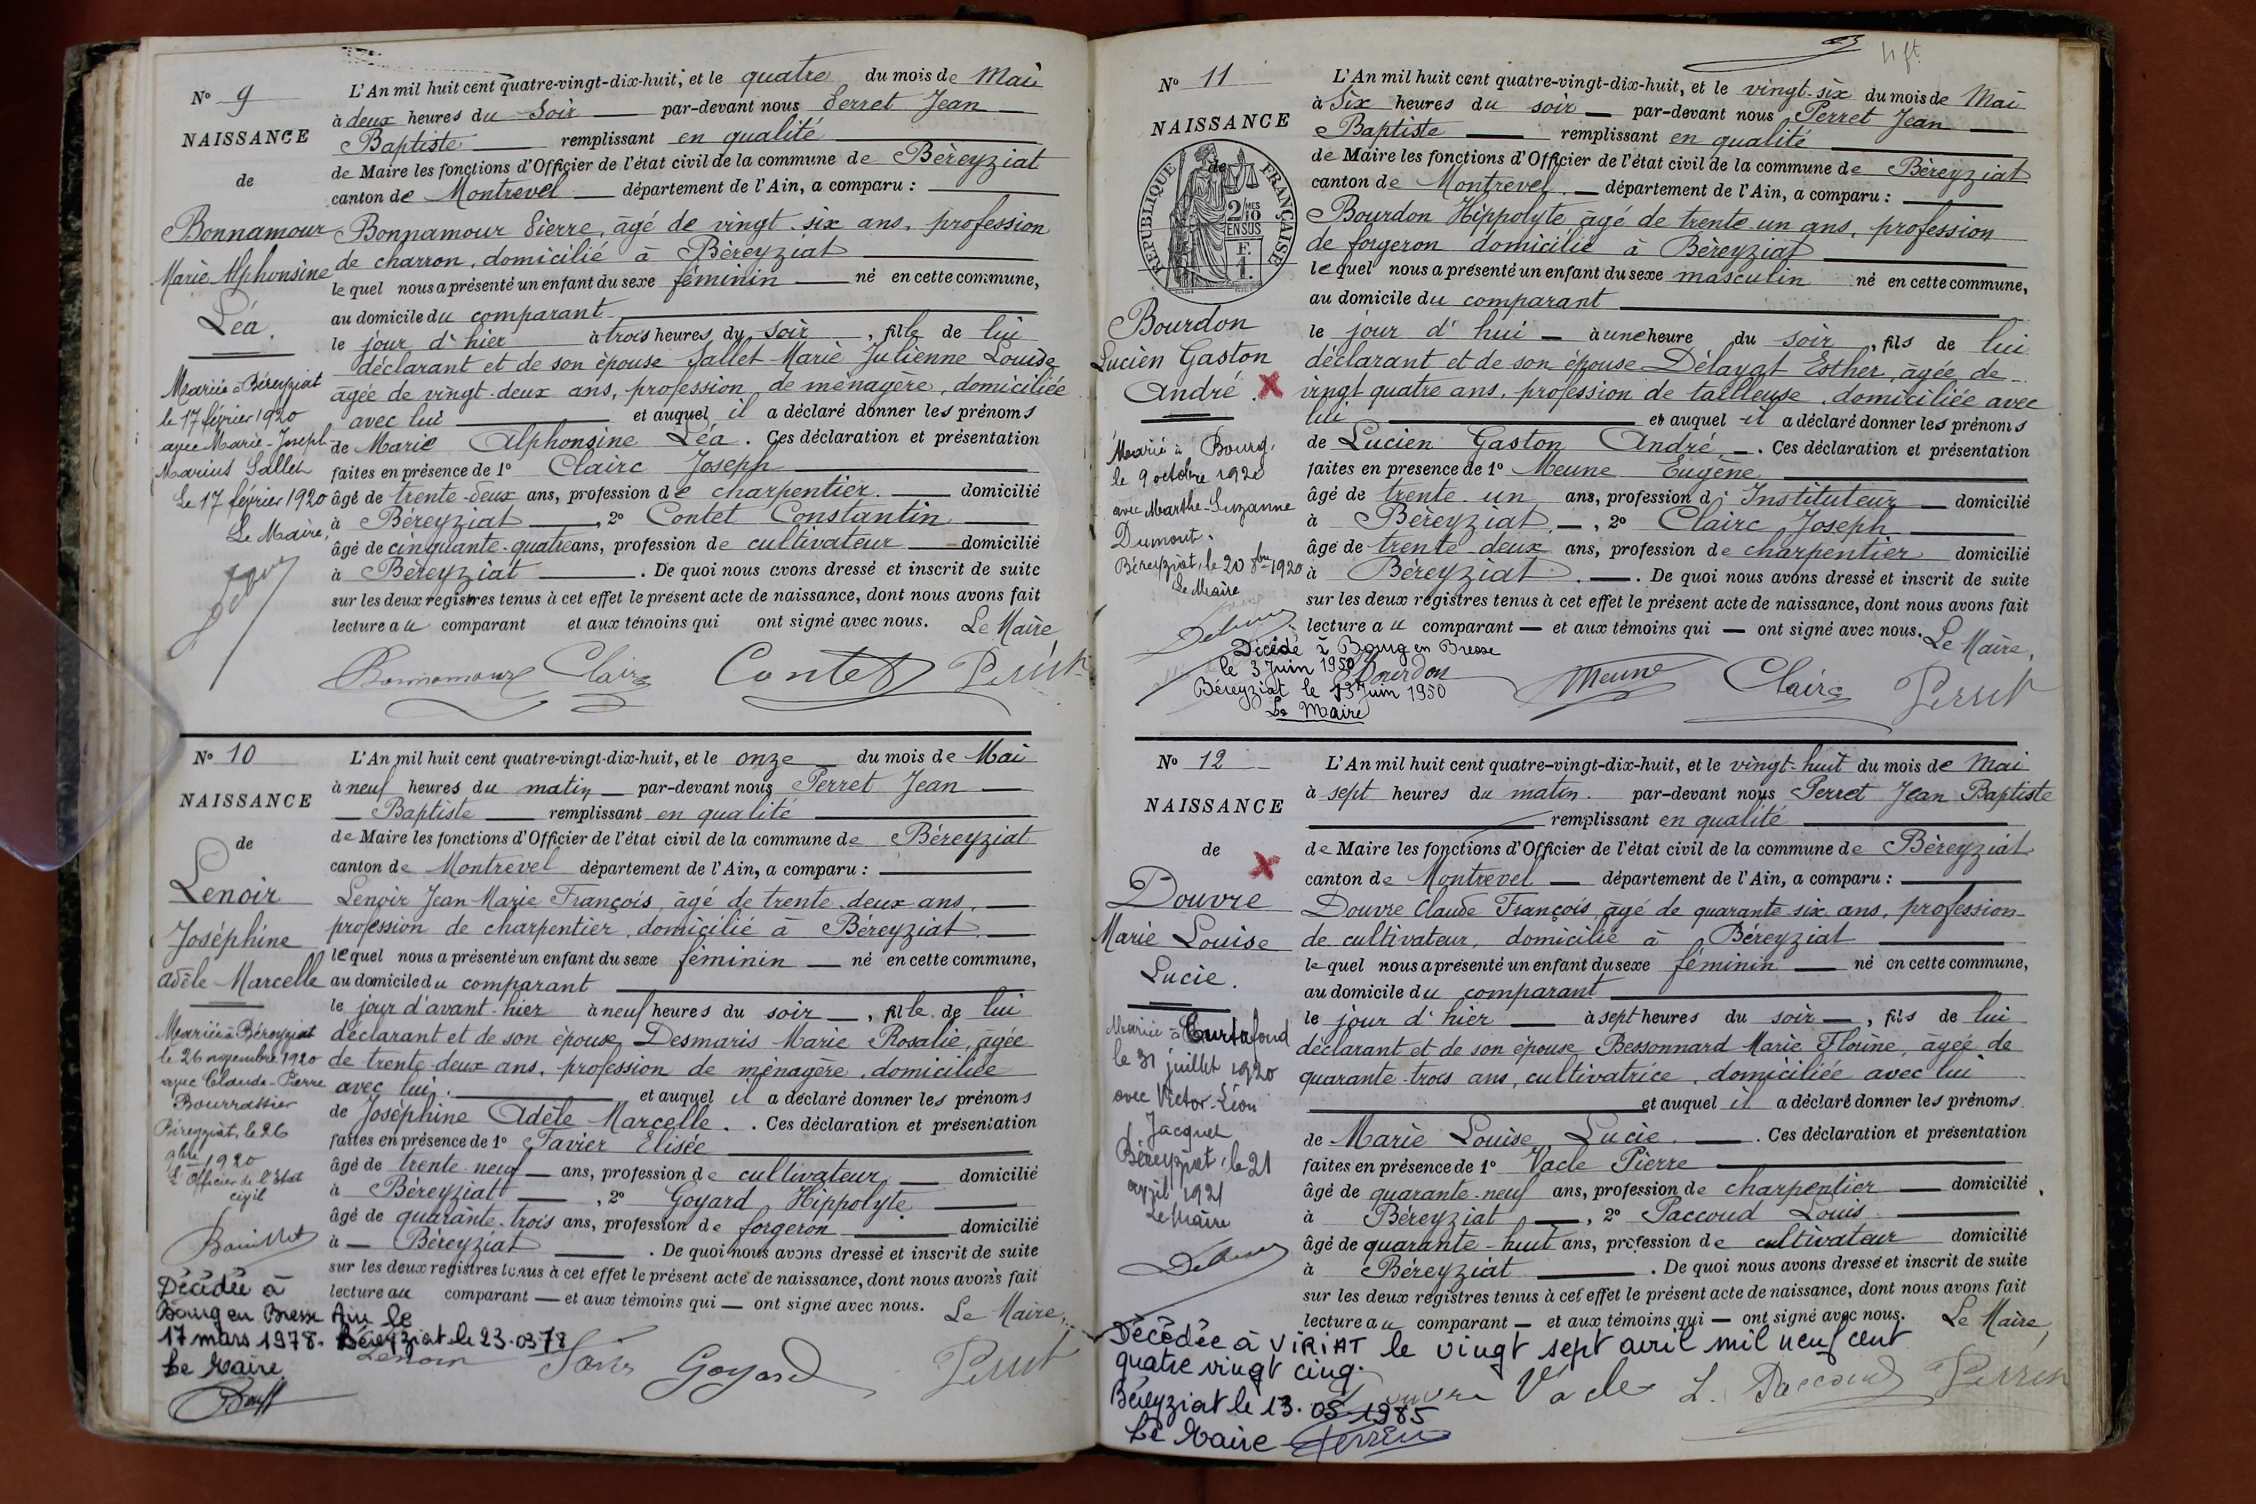 N° 9
NAISSANCE
de
Bonnamour
Marie Alphonsine
Léa.
Mariée à Béreyziat
le 17 février 1920
avec Marie-Joseph
Marius Sallet
Le 17 février 1920
Le Maire,
L'An mil huit cent quatre-vingt-dix-huit, et le quatre du mois de Mai
à deux heures du soir par-devant nous Perret Jean
Baptiste remplissant en qualité
de Maire les fonctions d'Officier de l'état civil de la commune de Béreyziat
canton de Montrevel département de l'Ain, a comparu :
Bonnamour Pierre, âgé de vingt-six ans, profession
de charron, domicilié à Béreyziat
lequel nous a présenté un enfant du sexe féminin né en cette commune,
au domicile du comparant
le jour d'hier à trois heures du soir, fille de lui
déclarant et de son épouse Sallet Marie Julienne Louise
âgée de vingt-deux ans, profession de ménagère, domiciliée
avec lui et auquel il a déclaré donner les prénoms
de Marie Alphonsine Léa. Ces déclaration et présentation
faites en présence de 1° Clairc Joseph
âgé de trente-deux ans, profession de charpentier. domicilié
à Béreyziat, 2° Contet Constantin
âgé de cinquante-quatre ans, profession de cultivateur domicilié
à Béreyziat. De quoi nous avons dressé et inscrit de suite
sur les deux registres tenus à cet effet le présent acte de naissance, dont nous avons fait
lecture au comparant et aux témoins qui ont signé avec nous. Le Maire
Bonnamour Clairc Contet Perret
N° 10
NAISSANCE
de
Lenoir
Joséphine
Adèle Marcelle
Mariée à Béreyziat
le 26 novembre 1920
avec Claude-Pierre
Bourrassier
Béreyziat, le 26
9bre 1920
L'Officier de l'Etat
civil
Décédée à
Bourg en Bresse Ain le
17 mars 1978. Béreyziat le 23.03.78
Le Maire
L'An mil huit cent quatre-vingt-dix-huit, et le onze du mois de Mai
à neuf heures du matin par-devant nous Perret Jean
Baptiste remplissant en qualité
de Maire les fonctions d'Officier de l'état civil de la commune de Béreyziat
canton de Montrevel département de l'Ain, a comparu :
Lenoir Jean-Marie François, âgé de trente-deux ans,
profession de charpentier, domicilié à Béreyziat
lequel nous a présenté un enfant du sexe féminin né en cette commune,
au domicile du comparant
le jour d'avant-hier à neuf heures du soir, fille de lui
déclarant et de son épouse Desmaris Marie Rosalie, âgée
de trente-deux ans, profession de ménagère, domiciliée
avec lui. et auquel il a déclaré donner les prénoms
de Joséphine Adèle Marcelle. . Ces déclaration et présentation
faites en présence de 1° Pavier Elisée
âgé de trente-neuf ans, profession de cultivateur domicilié
à Béreyziat, 2° Goyard Hippolyte
âgé de quarante-trois ans, profession de forgeron domicilié
à Béreyziat. De quoi nous avons dressé et inscrit de suite
sur les deux registres tenus à cet effet le présent acte de naissance, dont nous avons fait
lecture au comparant et aux témoins qui ont signé avec nous. Le Maire,
Lenoir Goyard Perret
N° 11
NAISSANCE
de
RÉPUBLIQUE FRANÇAISE
2/10 MES
EN SUS
F.
1.
Bourdon
Lucien Gaston
André.
Marié à Bourg,
le 9 octobre 1920
avec Marthe-Suzanne
Dumont.
Béreyziat, le 20 8bre 1920
Le Maire
Décédé à Bourg en Bresse
le 3 Juin 1950
Béreyziat le 13 Juin 1950
Le Maire
L'An mil huit cent quatre-vingt-dix-huit, et le vingt-six du mois de Mai
à Six heures du soir par-devant nous Perret Jean
Baptiste remplissant en qualité
de Maire les fonctions d'Officier de l'état civil de la commune de Béreyziat
canton de Montrevel. département de l'Ain, a comparu :
Bourdon Hippolyte âgé de trente un ans, profession
de forgeron domicilié à Béreyziat
lequel nous a présenté un enfant du sexe masculin né en cette commune,
au domicile du comparant
le jour d'hui à une heure du soir, fils de lui
déclarant et de son épouse Délayat Esther, âgée de
vingt quatre ans, profession de tailleuse, domiciliée avec
lui et auquel il a déclaré donner les prénoms
de Lucien Gaston André. Ces déclaration et présentation
faites en présence de 1° Meune Eugène
âgé de trente un ans, profession d' Instituteur domicilié
à Béreyziat, 2° Clairc Joseph
âgé de trente deux ans, profession de charpentier domicilié
à Béreyziat. De quoi nous avons dressé et inscrit de suite
sur les deux registres tenus à cet effet le présent acte de naissance, dont nous avons fait
lecture au comparant et aux témoins qui ont signé avec nous. Le Maire,
Bourdon Meune Clairc Perret
N° 12
NAISSANCE
de
Douvre
Marie Louise
Lucie.
Mariée à Curtafond
le 31 juillet 1920
avec Victor-Léon
Jacquet
Béreyziat, le 21
avril 1921
Le Maire
L'An mil huit cent quatre-vingt-dix-huit, et le vingt-huit du mois de Mai
à sept heures du matin. par-devant nous Perret Jean Baptiste
remplissant en qualité
de Maire les fonctions d'Officier de l'état civil de la commune de Béreyziat
canton de Montrevel département de l'Ain, a comparu :
Douvre Claude François, âgé de quarante-six ans, profession
de cultivateur, domicilié à Béreyziat
lequel nous a présenté un enfant du sexe féminin né en cette commune,
au domicile du comparant
le jour d'hier à sept heures du soir, fils de lui
déclarant et de son épouse Bessonnard Marie Florine, âgée de
quarante-trois ans, cultivatrice, domiciliée avec lui
et auquel il a déclaré donner les prénoms
de Marie Louise Lucie. Ces déclaration et présentation
faites en présence de 1° Vacle Pierre
âgé de quarante-neuf ans, profession de charpentier domicilié
à Béreyziat, 2° Paccoud Louis
âgé de quarante-huit ans, profession de cultivateur domicilié
à Béreyziat. De quoi nous avons dressé et inscrit de suite
sur les deux registres tenus à cet effet le présent acte de naissance, dont nous avons fait
lecture au comparant et aux témoins qui ont signé avec nous. Le Maire,
Décédée à VIRIAT le vingt sept avril mil neuf cent
quatre vingt cinq.
Douvre Vacle L. Paccoud Perret
Béreyziat le 13.05.1985
Le Maire